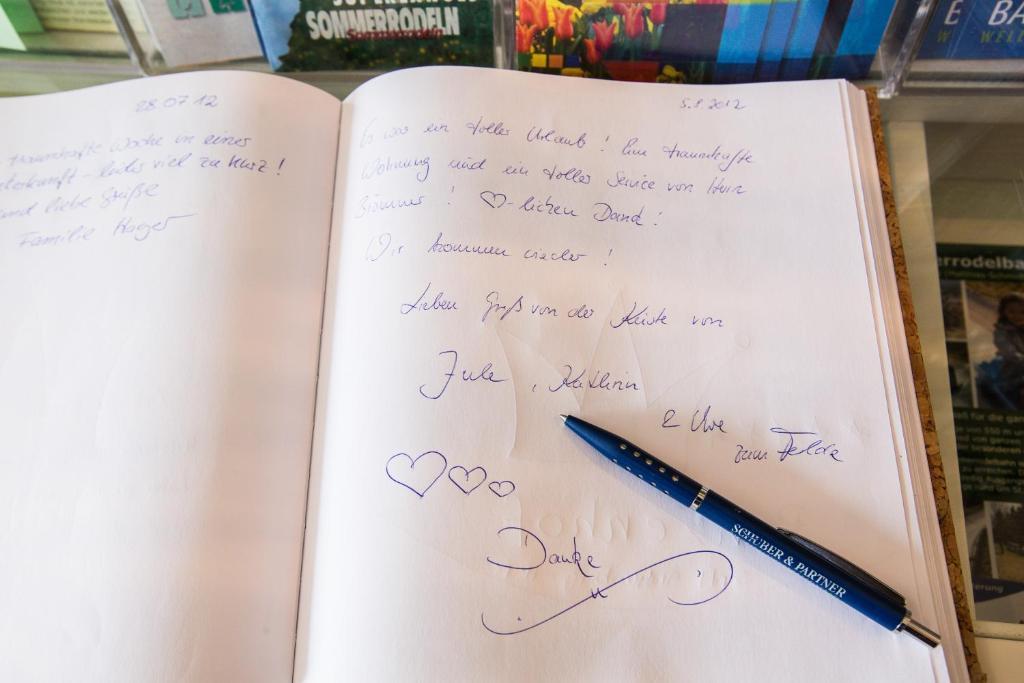 SOMMERRODELN
Sommerrodeln
E BA
WELL
28.07.12
traumhafte Woche in einer
- leider viel zu kurz!
und liebe Grüße
Familie Hager
5.8.2012
Es war ein toller Urlaub! Eine traumhafte
Wohnung und ein toller Service von Herrn
! ♡-lichen Dank!
Wir kommen wieder!
Lieben Gruß von der Küste von
Jule, Kathrin
& Uwe
zum Felde
Danke
SCHUBER & PARTNER
errodelba
für die gan